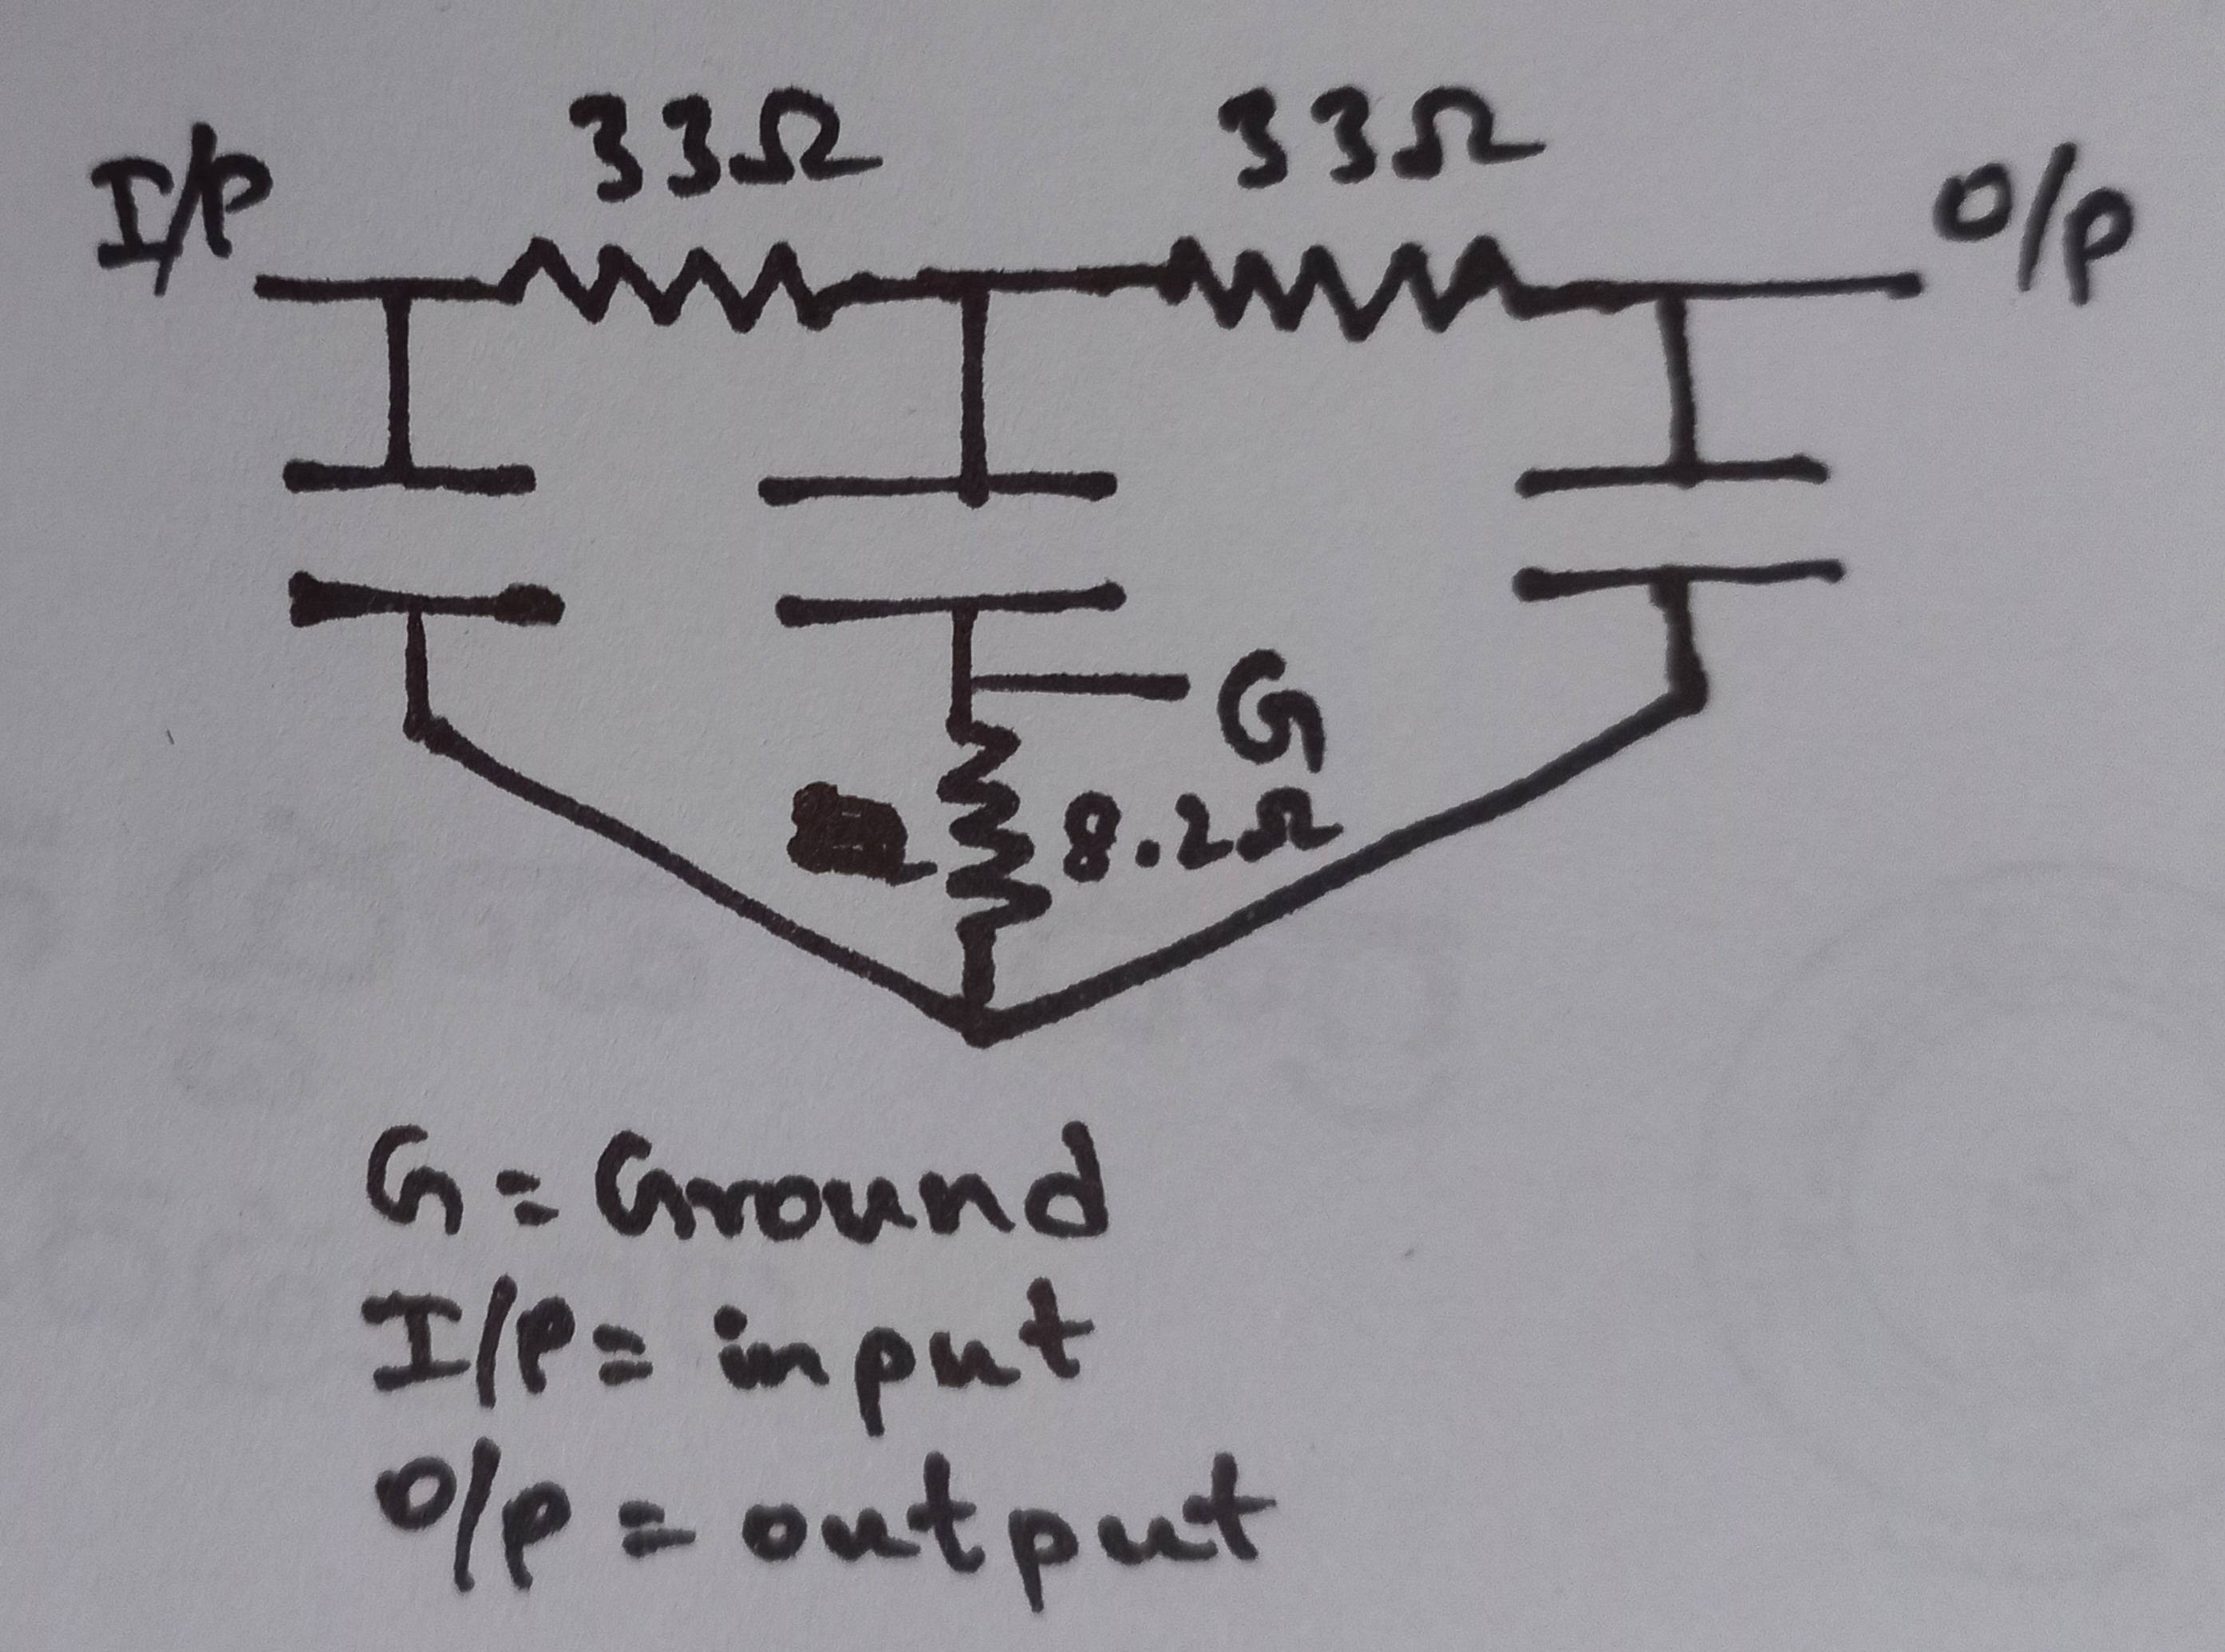 33Ω 33Ω
I/P O/P
G
8.2Ω
G = Ground
I/P = input
O/P = output